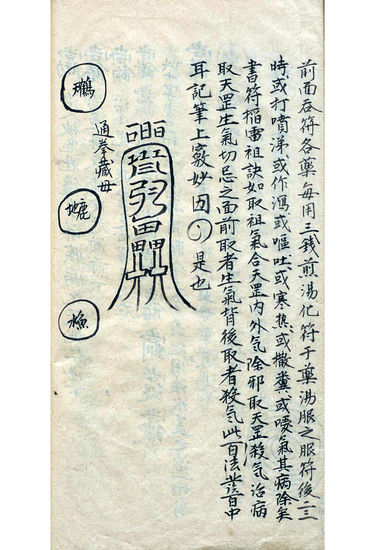 前面吞符各藥每用三錢煎湯化符于藥湯服之服符後二三
時或打噴涕或作瀉或嘔吐或寒熱或撒糞或噯氣其病除矣
書符稻雷祖訣如取祖氣合天罡內外氣除邪取天罡殺氣治病
取天罡生氣切忌之面前取者生氣背後取者殺氣此百法發百中
耳記筆上竅妙因 是也
通拳藏毋